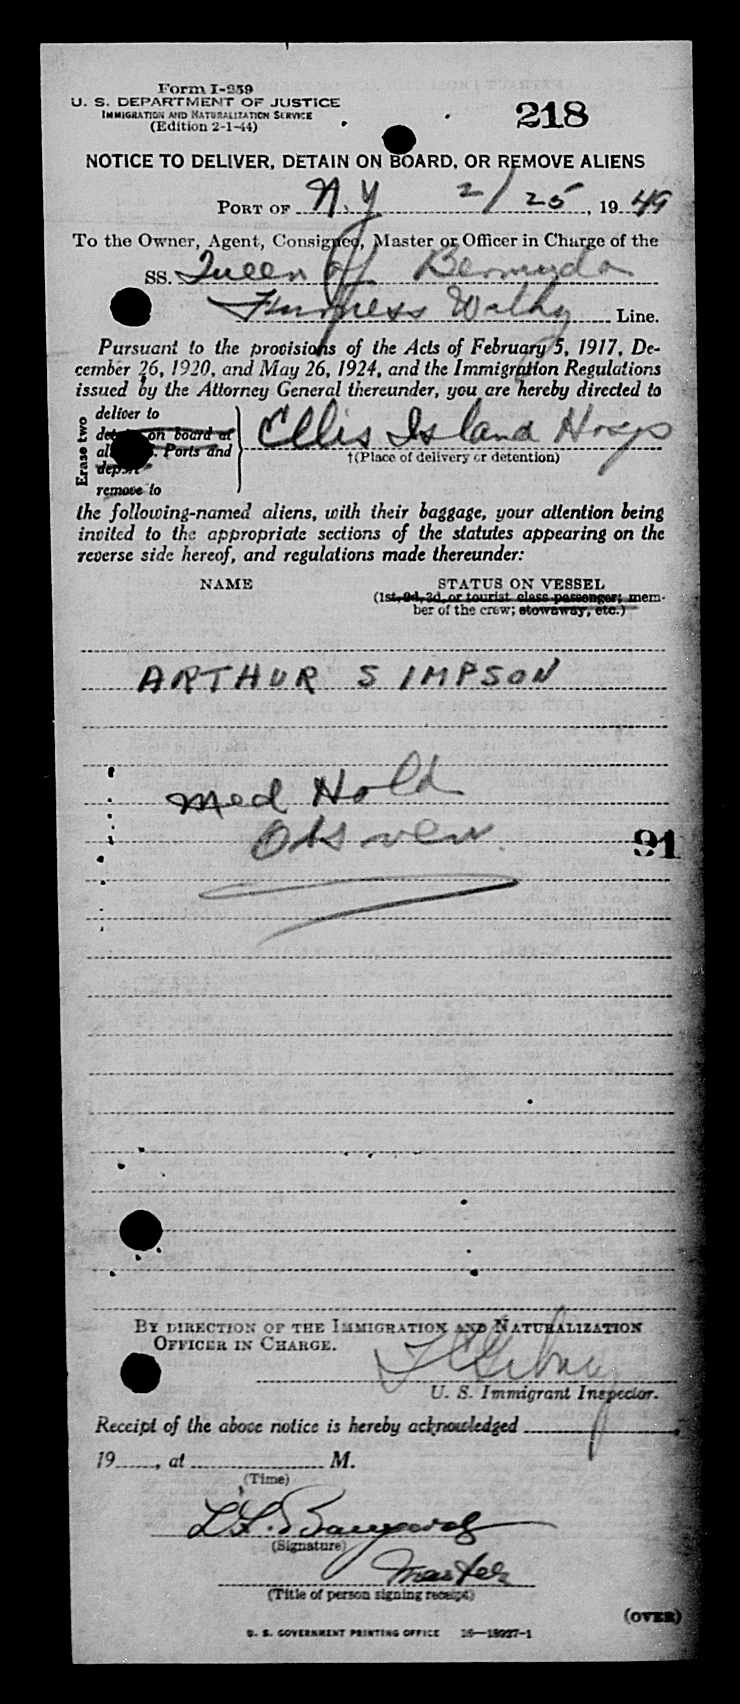 Form I-259
U. S. DEPARTMENT OF JUSTICE
IMMIGRATION AND NATURALIZATION SERVICE
(Edition 2-1-44)
218
NOTICE TO DELIVER, DETAIN ON BOARD, OR REMOVE ALIENS
PORT OF N.Y 2/25, 1949
To the Owner, Agent, Consignee, Master or Officer in Charge of the
SS. Queen of Bermuda
Furness Withy Line.
Pursuant to the provisions of the Acts of February 5, 1917, De-
cember 26, 1920, and May 26, 1924, and the Immigration Regulations
issued by the Attorney General thereunder, you are hereby directed to
Erase two
deliver to
on board at
Ports and
remove to
Ellis Island Hosp
†(Place of delivery or detention)
the following-named aliens, with their baggage, your attention being
invited to the appropriate sections of the statutes appearing on the
reverse side hereof, and regulations made thereunder:
NAME STATUS ON VESSEL
(1st, 2d, 3d, or tourist class passenger; mem-
ber of the crew; stowaway, etc.)
ARTHUR SIMPSON
Med Hold
91
BY DIRECTION OF THE IMMIGRATION AND NATURALIZATION
OFFICER IN CHARGE.
U. S. Immigrant Inspector.
Receipt of the above notice is hereby acknowledged
19, at M.
(Time)
(Signature)
Master
(Title of person signing receipt)
(OVER)
U. S. GOVERNMENT PRINTING OFFICE 16—18927-1